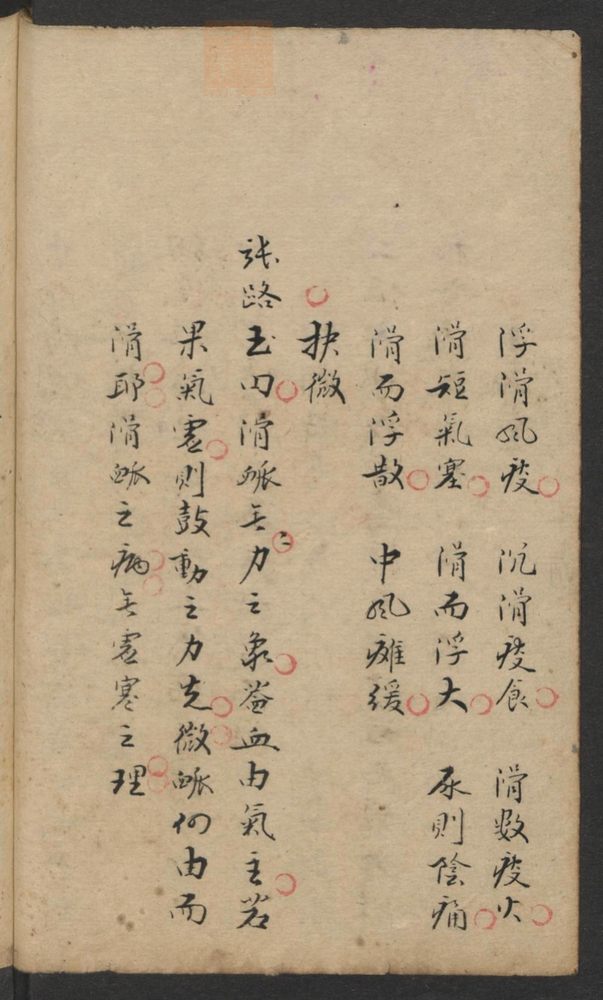 浮滑風痰　沉滑痰食　滑数痰火
滑短氣塞　滑而浮大　尿則陰痛
滑而浮散　中風癱緩
抉微
張路玉曰滑脈無力之象益血由氣主若
果氣虛則鼓動之力先微脈何由而
滑耶滑脈之病無虛寒之理